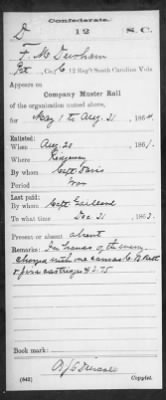 Confederate.
D 12 S.C.
F. M. Derham
Pvt, Co. C, 12 Reg't South Carolina Vols
Appears on
Company Muster Roll
of the organization named above,
for May 1 to Aug 31, 1864.
Enlisted:
When Aug 20, 1861.
Where
By whom Capt Davis
Period War
Last paid:
By whom Capt Gaillard
To what time Dec 31, 1863.
Present or absent absent
Remarks: In hands of the enemy.
Charged with one canvas C. B. Belt
Book mark:
(642) Copyist.